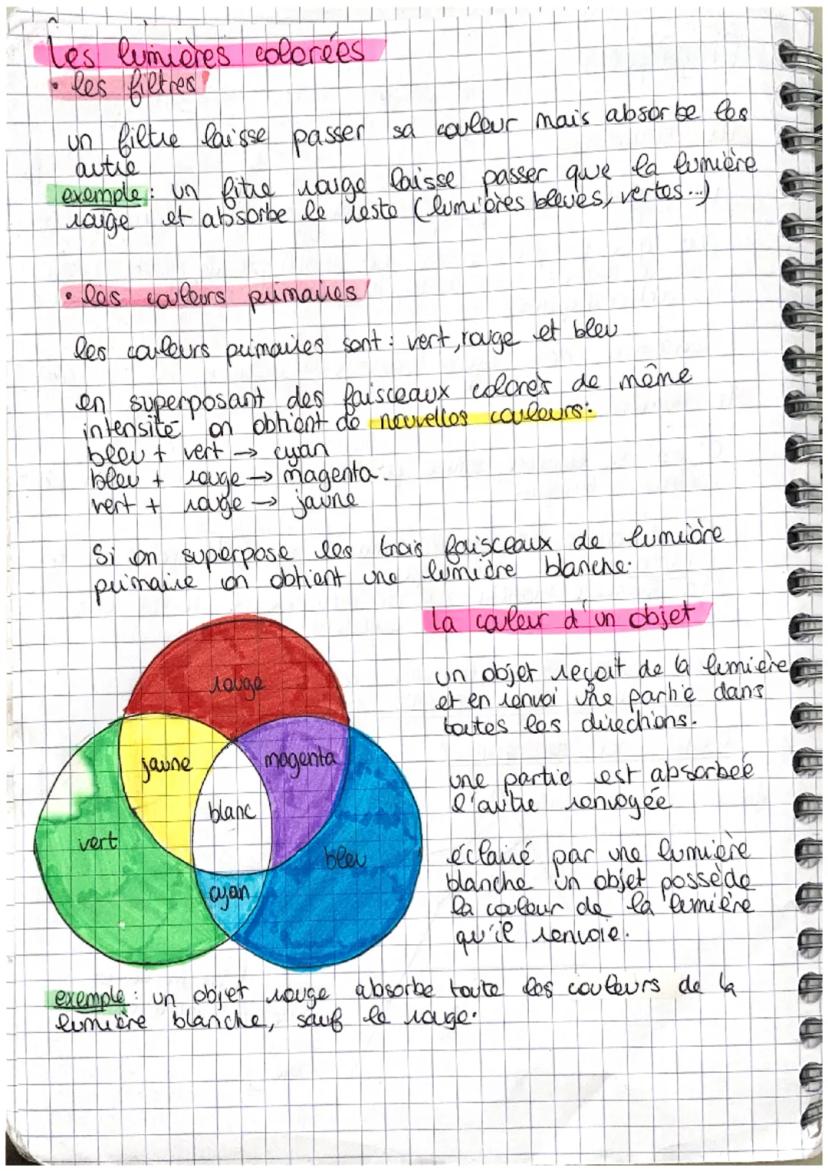 Les lumières colorées
• les filtres
un filtre laisse passer sa couleur mais absorbe les
autre
exemple : un fitre rouge laisse passer que la lumière
rouge et absorbe le reste (lumières bleues, vertes...)
• les couleurs primaires
les couleurs primaires sont : vert, rouge et bleu
en superposant des faisceaux colorés de même
intensité on obtient de nouvelles couleurs:
bleu + vert → cyan
bleu + rouge → magenta.
vert + rouge → jaune
Si on superpose les trois faisceaux de lumière
primaire on obtient une lumière blanche.
La couleur d'un objet
un objet reçoit de la lumière
et en renvoi une partie dans
toutes les directions.
une partie est absorbée
l'autre renvoyée
éclairé par une lumière
blanche un objet possède
la couleur de la lumière
qu'il renvoie.
rouge
jaune
magenta
blanc
vert
bleu
cyan
exemple : un objet rouge absorbe toute les couleurs de la
lumière blanche, sauf le rouge.